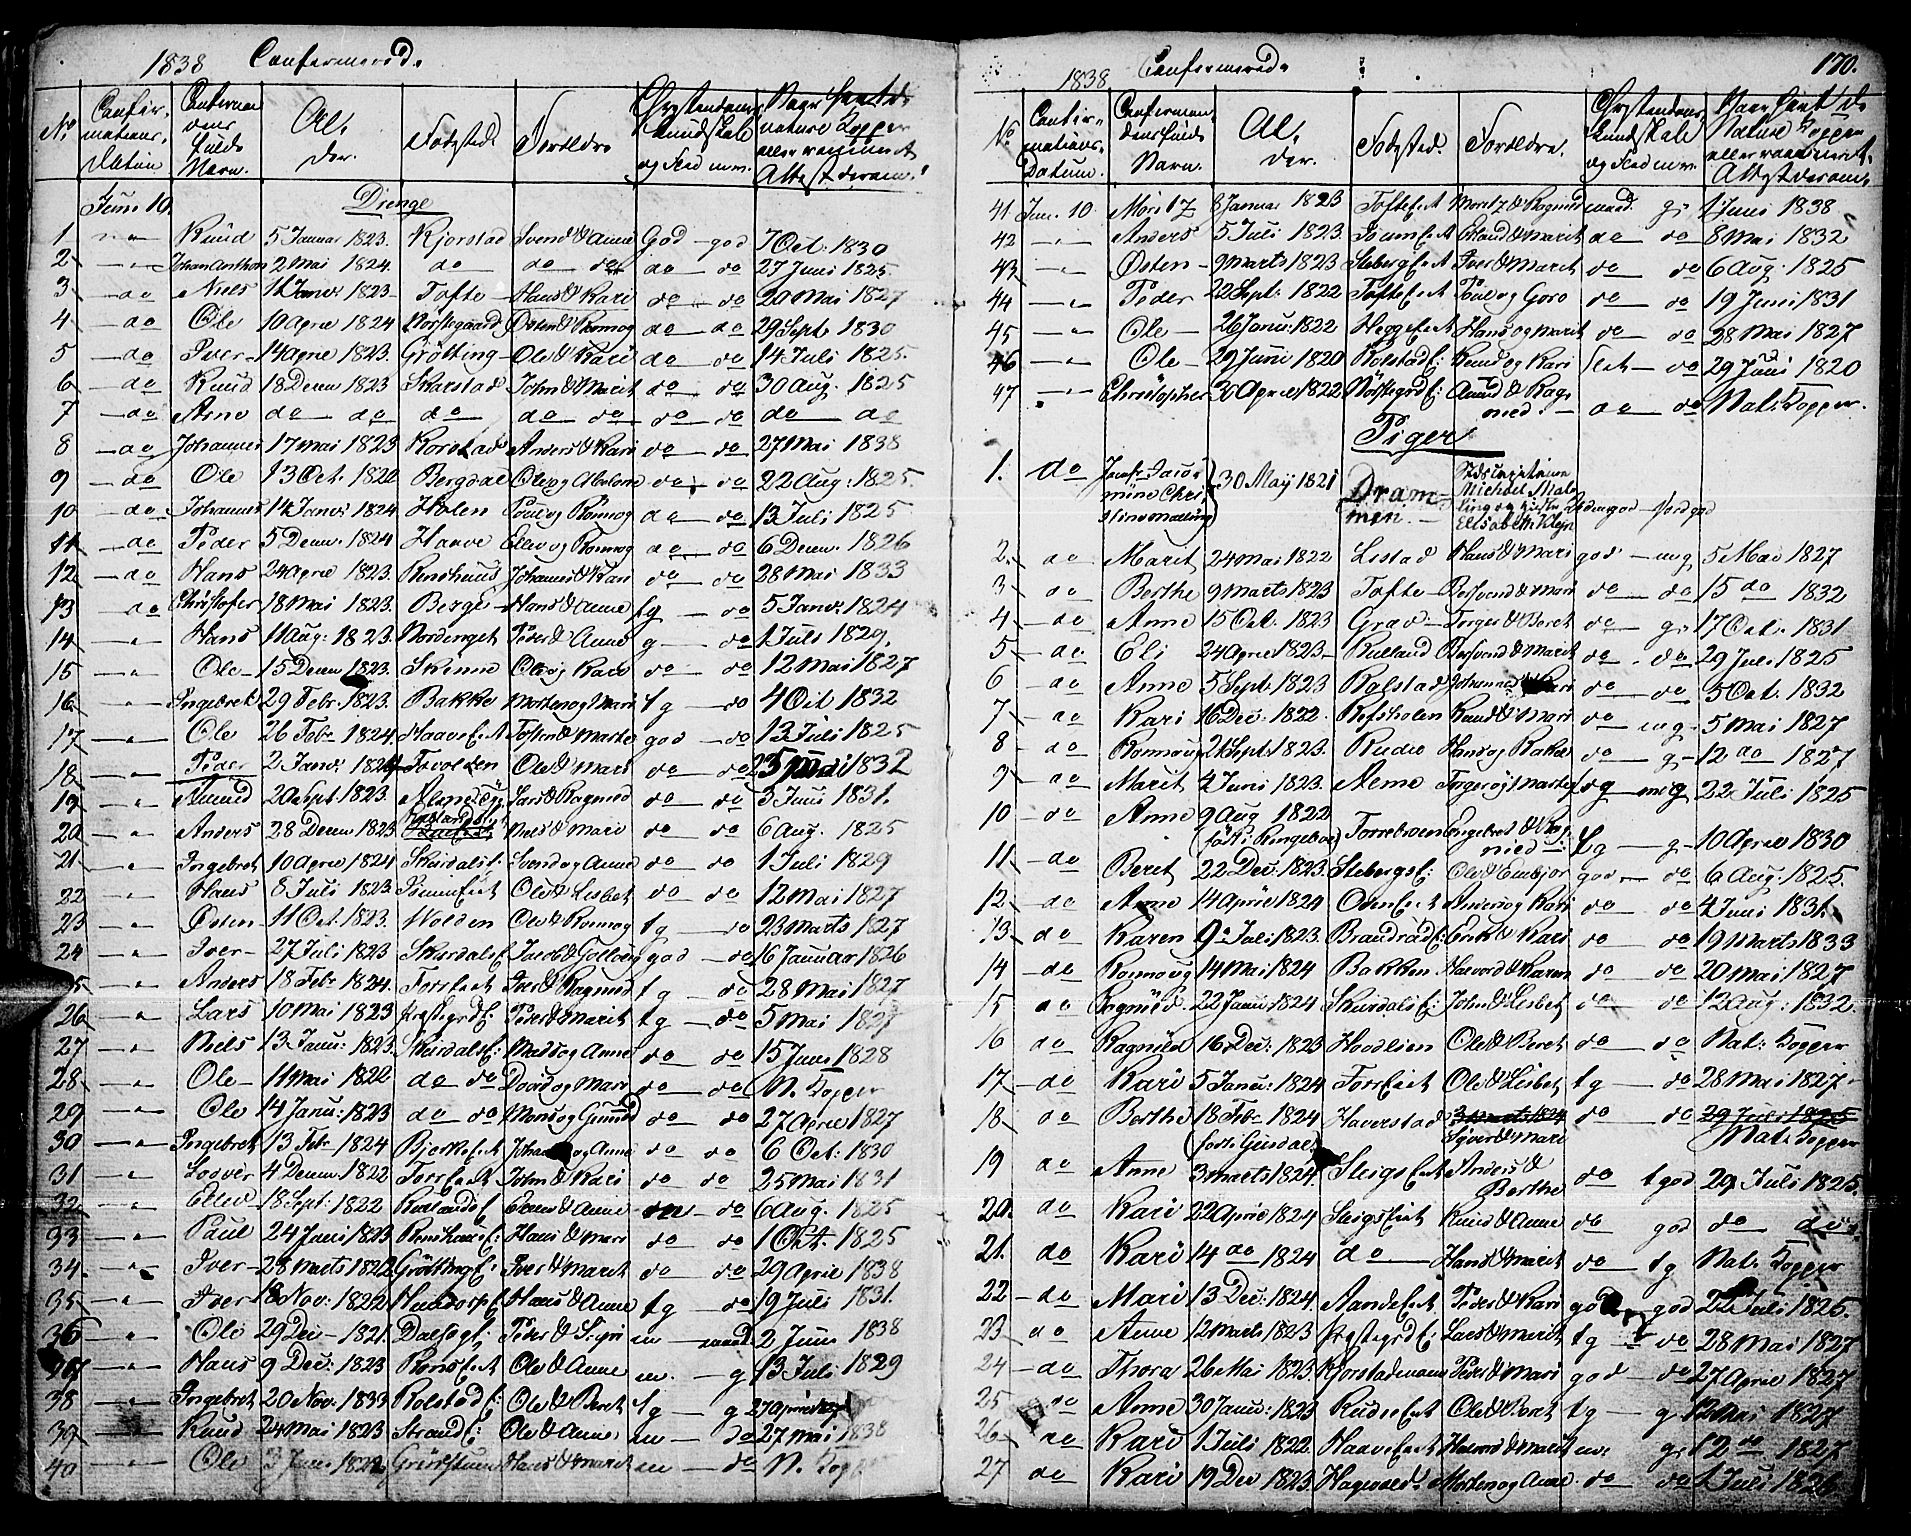 1838 Confirmered.
No Confir- mations. Datum Confirman dens fulde Navn. Al- der. Fødested Forældre Christendoms kundskab og Sædener. Naar havt de naturl. Kopper eller vaccineret Attest derom.
Juni 10. Drenge
1 Knud 5 Januar 1823. Kjorstad Svend & Anne God god 7 Oct. 1830
2 Johan Anthon 2 Mai 1824. do do do do do 27 Juni 1825
3 do Niels 11 Janv. 1823 Tofte Hans & Kari do do 20 Mai 1827
4 do Ole 10 April 1824 Østen & Romnog do do 29 Sept. 1830
5 do Iver 14 April 1823. Grötting Ole & Kari do do 14 Juli 1825.
6 do Knud 18 Decem 1823 Skarstad John & Marit do do 30 Aug. 1825
7 do Arne do do do do do do do do do
8 do Johannes 17 Mai 1823 Anders & Kari do do 27 Mai 1838
9 do Ole 13 Oct. 1822 Bergdal Ole og do do 22 Aug. 1825.
10 do Johannes 14 Janv. 1824 Holen Poul og Romnog do do 13 Juli 1825
11 do Peder 5 Decem. 1824 Haave Ellev og Romnog do do 6 Decem. 1826
12 do Hans 24 April 1823. Johannes & Kari do do 28 Mai 1833
13 do Christofer 18 Mai 1823. Berge Hans & Anne tg do 5 Janv. 1824
14 Hans 11 Aug: 1823. Nordenget Peder & Anne g do 1 Juli 1829.
15 Ole 15 Decem 1823. Skinne Ole og Kari do do 12 Mai 1827
16 Ingebret 29 Febr. 1823. Bakke Morten og Mari tg do 4 Oct 1832
17 Ole 26 Febr 1824. Haave E.t Tosten & Marte god do 13 Juli 1825
18 Peder 2 Janv. 1824 Ole & Mari do do 1832
19 Amund 20 Sept. 1823. Lars & Ragnild do do 3 Juni 1831.
20 Anders 28 Decem 1823 Niels & Mari do do 6 Aug. 1825
21 Ingebret 10 April 1824 Skurdalsf. Svend og Anne do do 1 Juli 1829
22 Hans 8 Juli 1823 Ole & Lisbet do do 12 Mai 1827
23 Østen 11 Oct. 1823. Volden Ole & Romnog tg do 23 Marts 1827
24 Iver 27 Juli 1823 Skurdalsf. Jacob & god do 16 Januar 1826
25 Anders 18 Febr 1824. Forr E.t Iver & Ragnild tg do 28 Mai 1827
26 Lars 10 Mai 1823 Præstegrd E: Peder & Marit tg do 5 Mai 1827
27 Niels 13 Janu: 1823. Skurdals E: Mads og Anne do do 15 Juni 1828
28 Ole 11 Mai 1822 do do David og Mari do do N. Kopper
29 Ole 14 Janu: 1823 do do Mons og Gunild do do 27 April 1827
30 Ingebret 13 Febr 1824 Bjerke E.t og Anne do do 6 Oct: 1830
31 Lodver 4 Decem. 1822 Forr E.t John & Kari do do 25 Mai 1831
32 Ellev 18 Sept. 1822 & Anne do 6 Aug. 1825
33 Paul 24 Juni 1823 Hans & Mari do do 1 Oct. 1825
34 Iver 28 Marts 1822 Grötting E: Iver & Marit do do 29 April 1838
35 Iver 18 Nov. 1822 Hundorp E. Hans & Anne tg do 19 Juli 1831.
36 Ole 29 Dec 1821. Peder & Sigri m maad. 2 Juni 1838
37 Hans 9 Dec: 1823 Ole & Anne m. g 13 Juli 1829
38 Ingebret 20 Nov. 1833 Rolstad E: Ole & Beret tg g 27 April
39 Knud 24 Mai 1823 Strand E: Ole & Anne m do 27 Mai 1838
40 Ole 3 1822 Hans & Marit m do N. Kopper
170.
1838 Confirmered.
No Confir- mations. Datum. Confirman dens fulde Navn. Al- der. Fødested. Forældre. Christendoms kundskab og Sædener. Naar havt de Naturl. Kopper eller vaccineret. Attest derom.
41 Juni. 10. Moritz 8 Januar 1823 Tofte E.t Moritz & Ragnild maad. g. 1 Juni 1838
42 Anders 5 Juli 1823. Erland & Marit do do 8 Mai 1832
43 Østen 9 Marts 1823 Steberg E.t Iver & Marit do do 6 Aug. 1825
44 Peder 22 Sept: 1822 Tofte E.t Poul og Goro do do 19 Juni 1831
45 Ole 26 Janu: 1822 Hegge E.t Hans og Marit do do 28 Mai 1827
46 Ole 29 Juni 1820 Rolstad E: Knud og Kari slet do 29 Juni 1820
47 Christopher 30 April 1822 Amund & Rag- nild do do Nat: Kopper.
Piger
1. do Jomfr. Jacob- mine Chri- stine Malling 30 May 1821 Dram- men. Michael Mal- ling og Elisabeth Klejn
2. do Marit 24 Mai 1822 Listad Hans & Mari god mg 5 Mai 1827
3 do Berthe 9 Marts 1823 Tofte Botsvend & Mari do do 15 do 1832
4 do Anne 15 Oct. 1823 Grav Torger & Beret do g. 17 Oct. 1831
5 do Eli 24 April 1823 Rulland Botsvend & Marit do do 29 Juli 1825
6 do Anne 5 Sept. 1823 Rolstad Johannes & Kari do do 5 Oct. 1832
7 do Kari 16 Dec: 1822. Refsholen Knud & Mari do mg 5 Mai 1827
8 do Romnoug 21 Sept: 1823. Rudie Hans og Rakel do g 12 do 1827
9 do Marit 4 Juni 1823 Arne tg mg 22 Juli 1825
10 do Anne 9 Aug 1822 (född i Ringeboe) Engebret & Rag- nild tg g 10 April 1830
11 do Beret 22 Dec: 1823. Stebergs E: Ole & Embjor god do 6 Aug. 1825.
12 do Anne 14 April 1824 Oden E.t Anders og Kari do do 4 Juni 1831.
13 do Karen 9 Jul: 1823. Erik & Kari do do 19 Marts 1833
14 do Romnoug 14 Mai 1824 Bakken Halvord & Karen do do 20 Mai 1827
15 do Ragnild. 22 Janu: 1824 Skurdals E: John & Lisbet do do 12 Aug: 1832.
16 do Ragnild 16 Dec: 1823 Hovdlien Ole & Beret do do Nat: Kopper
17 do Kari 5 Janu: 1824 Forr E.t Ole & Lisbet tg do 28 Mai 1827.
18 do Berthe 18 Febr 1824 (fødti Gusdal) Haverstad 3 Marts 1824 Syver & Mari do do 29 Juli 1825 Nat: Kopper
19 do Anne 3 Marts 1824. Steigs E.t Anders & Berthe do tgod 29 Juli 1825.
20. do Kari 22 April 1824 Steigs E.t Knud & Anne do god do do
21. do Kari 14 do 1824 do Hans & Marit do tg Nat: Kopper
22 do Mari 13 Dec: 1824. Aande E.t Peder & Kari god god 22 Juli 1825.
23. do Anne 12 Marts 1823 Præstegrd E: Lars & Marit tg do 28 Mai 1827
24 do Thora 26 Mai 1823 Peder & Mari god do 27 April 1827
25 do Anne 30 Janu: 1823 Rudie E.t Ole & Beret tg g 12 Mai 1827
26 do Kari 1 Juli 1822. Haave E.t Halvor & Marit m. g. 12 do 1827
27 do Kari 19 Dec 1823 Morten og Anne do do 1 Juli 1826